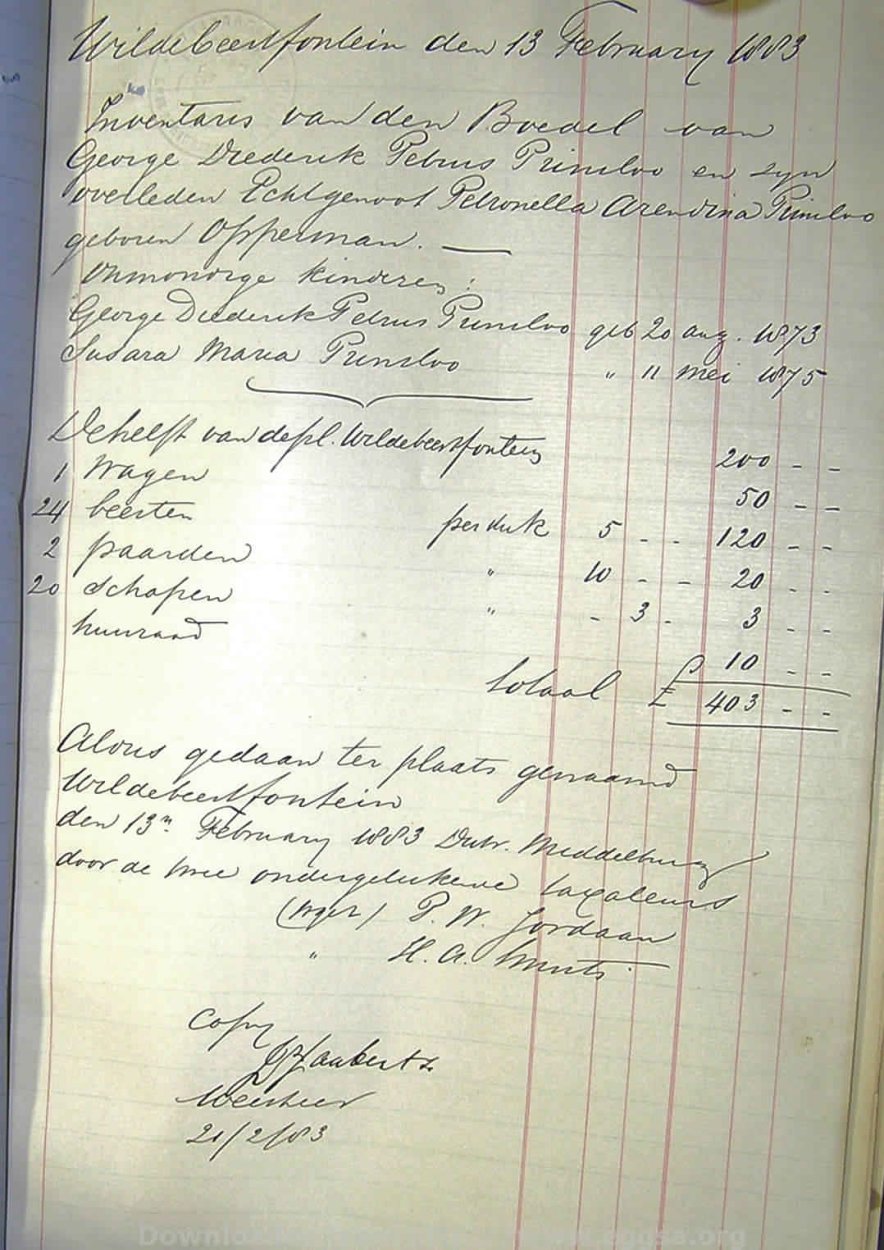 Wildebeestfontein den 13 February 1883
Inventaris van den Boedel van
George Diederik Petrus Prinsloo en zyn
overleden Echtgenoot Petronella Arendina Prinsloo
geboren Opperman. —
Onmondige kinderen:
George Diederik Petrus Prinsloo geb 20 aug. 1873
Susara Maria Prinsloo " 11 Mei 1875
De helft van de pl. Wildebeestfontein 200 - -
1 Wagen 50 - -
24 beesten per stuk 5 - - 120 - -
2 paarden " 10 - - 20 - -
20 schapen " - 3 - 3 - -
huisraad 10 - -
totaal £ 403 - -
Aldus gedaan ter plaats genaamd
Wildebeestfontein
den 13n February 1883 Distr. Middelburg
door de twee ondergetekende taxateurs
(wget) P. W. Jordaan
" H. A. Smits
Copy
Joubert
Weesheer
21/2/83